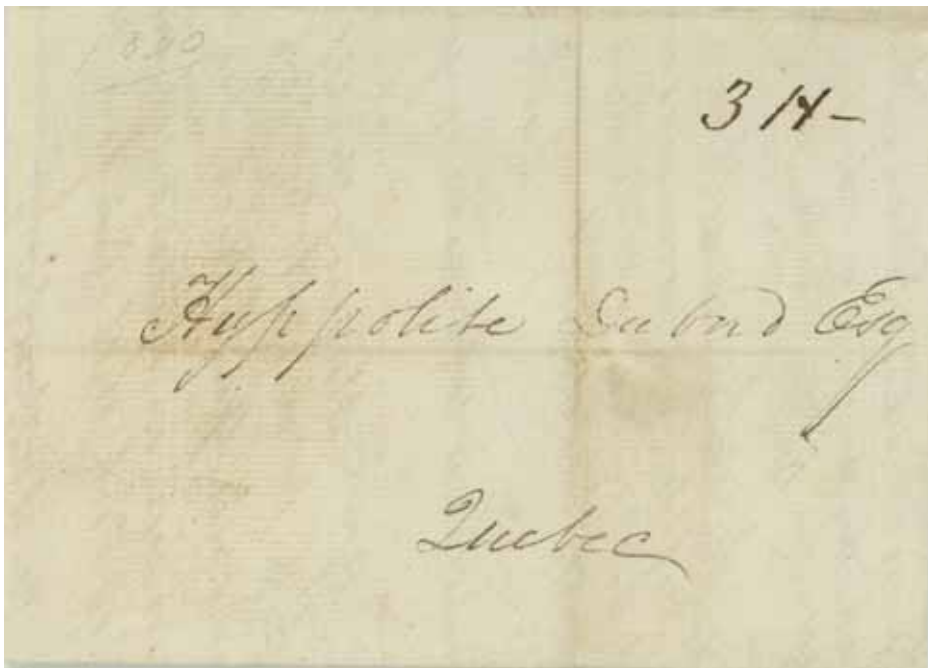 1840
3 N-
Hyppolite Dubord Esq
Quebec